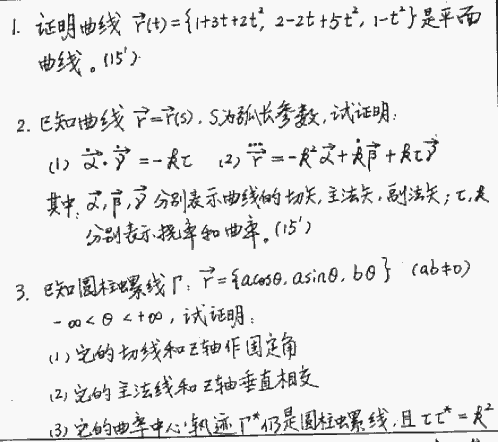 1. 证明曲线 r⃗(t)={1+3t+2t², 2-2t+5t², 1-t²}是平面
曲线。(15')
2. 已知曲线 r⃗=r⃗(s), S为弧长参数,试证明:
(1) α⃗̇·γ⃗̇=-kτ (2) r⃗⃛=-k²α⃗+k̇β⃗+kτγ⃗
其中:α⃗,β⃗,γ⃗分别表示曲线的切矢,主法矢,副法矢;τ,k
分别表示挠率和曲率。(15')
3. 已知圆柱螺线Γ: r⃗={acosθ, asinθ, bθ} (ab≠0)
-∞<θ<+∞, 试证明:
(1)它的切线和Z轴作固定角
(2)它的主法线和Z轴垂直相交
(3)它的曲率中心轨迹Γ*仍是圆柱螺线,且ττ*=k²